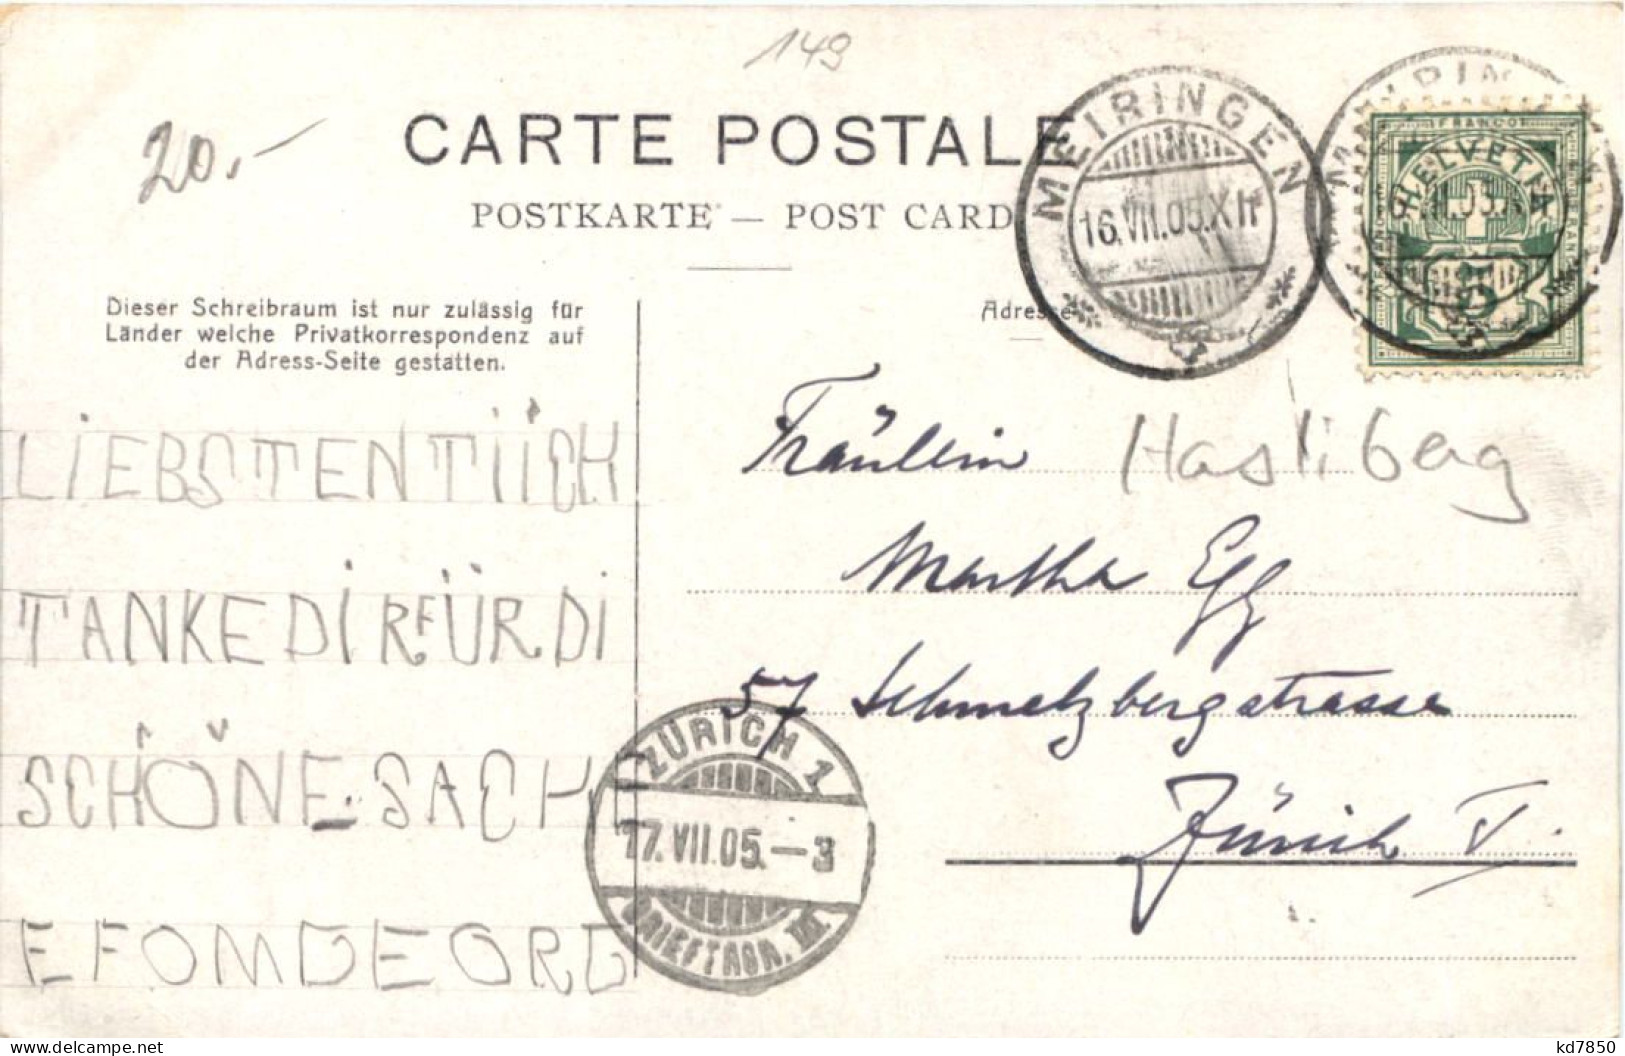 149
20.-
CARTE POSTALE
POSTKARTE — POST CARD
MEIRINGEN
16.VII.05.XII
FRANCO
HELVETIA
Dieser Schreibraum ist nur zulässig für
Länder welche Privatkorrespondenz auf
der Adress-Seite gestatten.
Adresse
LIEBSTENTIICH
TANKEDIRFÜRDI
SCHÖNE SACH
EFOMGEORG
Fräulein
Hasliberg
Martha Egg
57 Schmelzbergstrasse
Zürich V.
ZÜRICH 1
17.VII.05.—3
BRIEFTRGR. III.
delcampe.net
kd7850